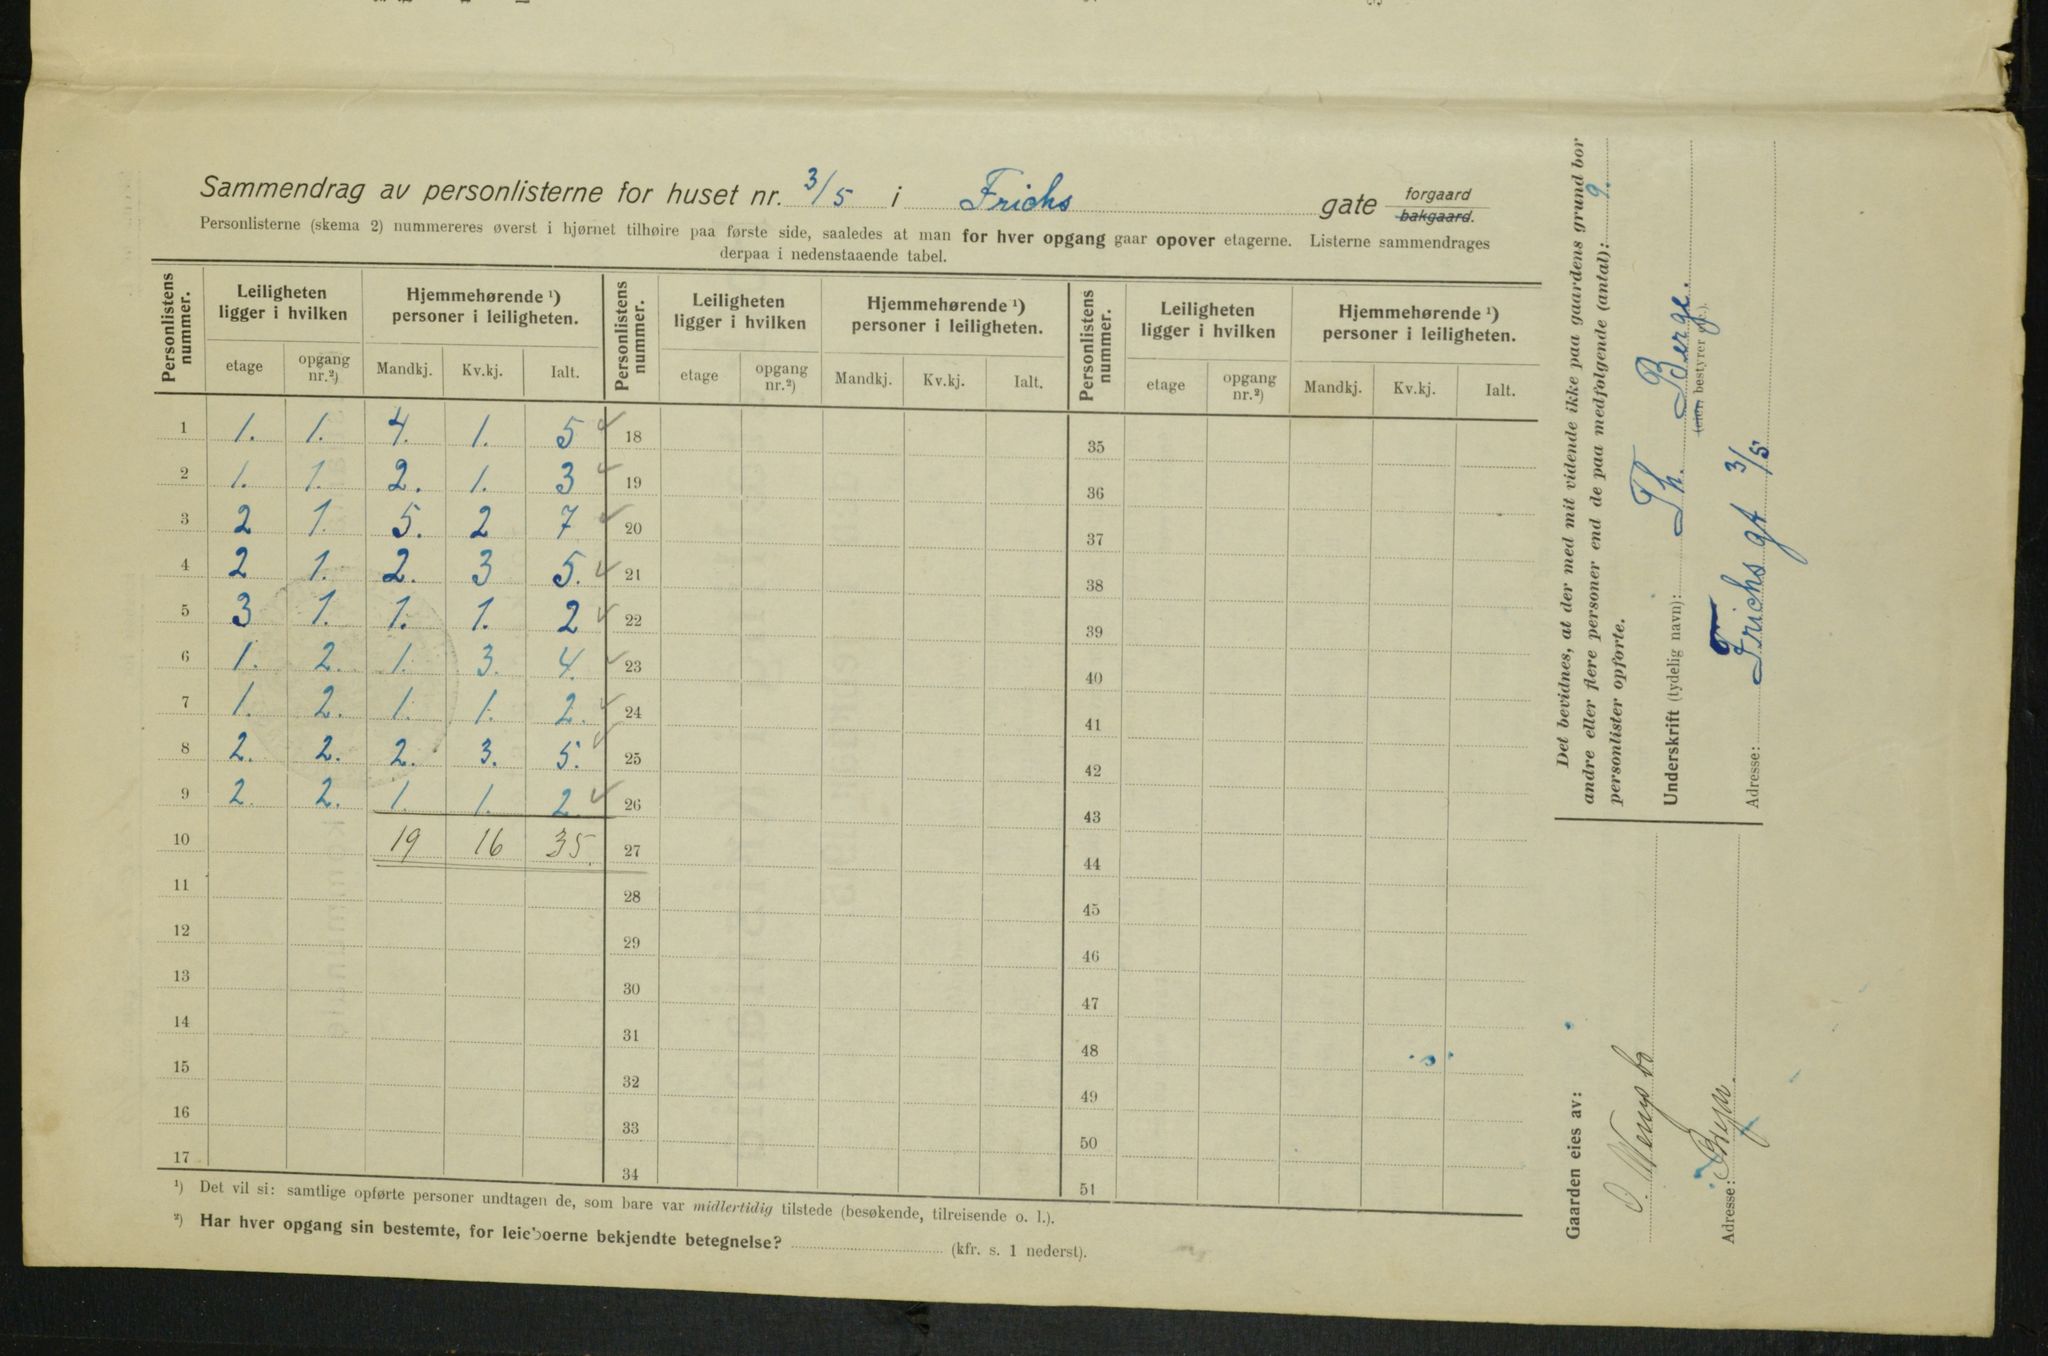 Sammendrag av personlisterne for huset nr. 3/5 i Frichs gate forgaard bakgaard.
Personlisterne (skema 2) nummereres øverst i hjørnet tilhøire paa første side, saaledes at man for hver opgang gaar opover etagerne. Listerne sammendrages
derpaa i nedenstaaende tabel.
Personlistens nummer. Leiligheten ligger i hvilken Hjemmehørende ¹) personer i leiligheten. Personlistens nummer. Leiligheten ligger i hvilken Hjemmehørende ¹) personer i leiligheten. Personlistens nummer. Leiligheten ligger i hvilken Hjemmehørende ¹) personer i leiligheten.
etage opgang nr.²) Mandkj. Kv.kj. Ialt. etage opgang nr.²) Mandkj. Kv.kj. Ialt. etage opgang nr.²) Mandkj. Kv.kj. Ialt.
1 1. 1. 4. 1. 5 18 35
2 1. 1. 2. 1. 3 19 36
3 2 1. 5. 2 7 20 37
4 2 1. 2. 3 5. 21 38
5 3 1. 1. 1. 2 22 39
6 1. 2. 1. 3. 4. 23 40
7 1. 2. 1. 1. 2. 24 41
8 2. 2. 2. 3. 5. 25 42
9 2. 2. 1. 1. 2. 26 43
10 19 16 35. 27 44
11 28 45
12 29 46
13 30 47
14 31 48
15 32 49
16 33 50
17 34 51
¹) Det vil si: samtlige opførte personer undtagen de, som bare var midlertidig tilstede (besøkende, tilreisende o. l.).
²) Har hver opgang sin bestemte, for leieboerne bekjendte betegnelse? (kfr. s. 1 nederst).
Det bevidnes, at der med mit vidende ikke paa gaardens grund bor
andre eller flere personer end de paa medfølgende (antal): 9.
personlister opførte.
Underskrift (tydelig navn): Th. Berge.
(eier, bestyrer etc.).
Adresse: Frichs gt 3/5
Gaarden eies av:
Adresse: